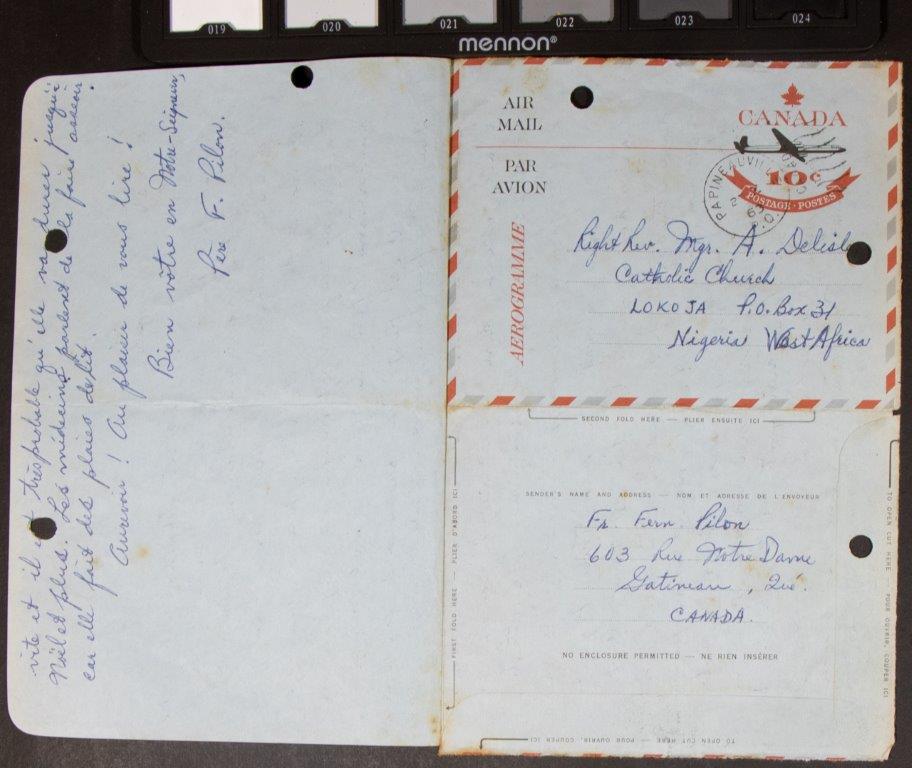 019 020 021 022 023 024
mennon®
vite et il est très probable qu'elle va durer jusqu'à
Noël et plus. Les médecins parlent de la faire asseoir
car elle fait des plaies de lit.
Aurevoir! Au plaisir de vous lire!
Bien vôtre en Notre-Seigneur,
Père F. Pilon.
AIR
MAIL
PAR
AVION
AEROGRAMME
CANADA
10¢
POSTAGE·POSTES
PAPINEAUVILLE
P.Q.
Right Rev. Mgr. A. Delisle
Catholic Church
LOKOJA P.O. Box 31
Nigeria West Africa
SECOND FOLD HERE — PLIER ENSUITE ICI
SENDER'S NAME AND ADDRESS — NOM ET ADRESSE DE L'ENVOYEUR
Fr. Fern. Pilon
603 Rue Notre Dame
Gatineau, Qué.
CANADA.
NO ENCLOSURE PERMITTED — NE RIEN INSÉRER
FIRST FOLD HERE — PLIER D'ABORD ICI
TO OPEN CUT HERE POUR OUVRIR, COUPER ICI
TO OPEN CUT HERE — POUR OUVRIR, COUPER ICI